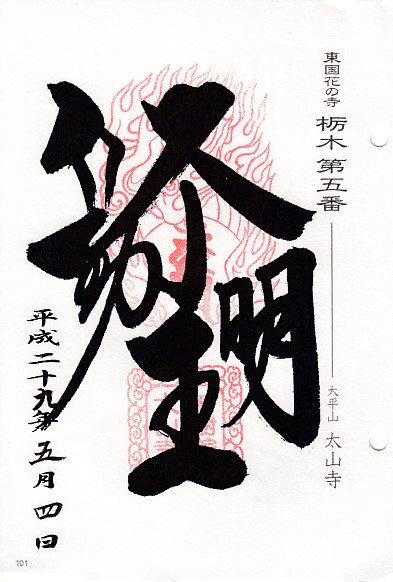 東国花の寺 栃木 第五番 大平山 太山寺
不動明王
平成二十九年五月四日
101